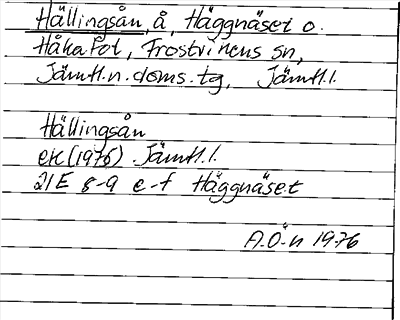 Hällingsån, å, Häggnäset o.
Håkafot, Frostvikens sn,
Jämtl.n.doms.tg, Jämtl.l.
Hällingsån
ek (1976) Jämtl.l.
21E 8-9 e-f Häggnäset
A.Ö-n 1976